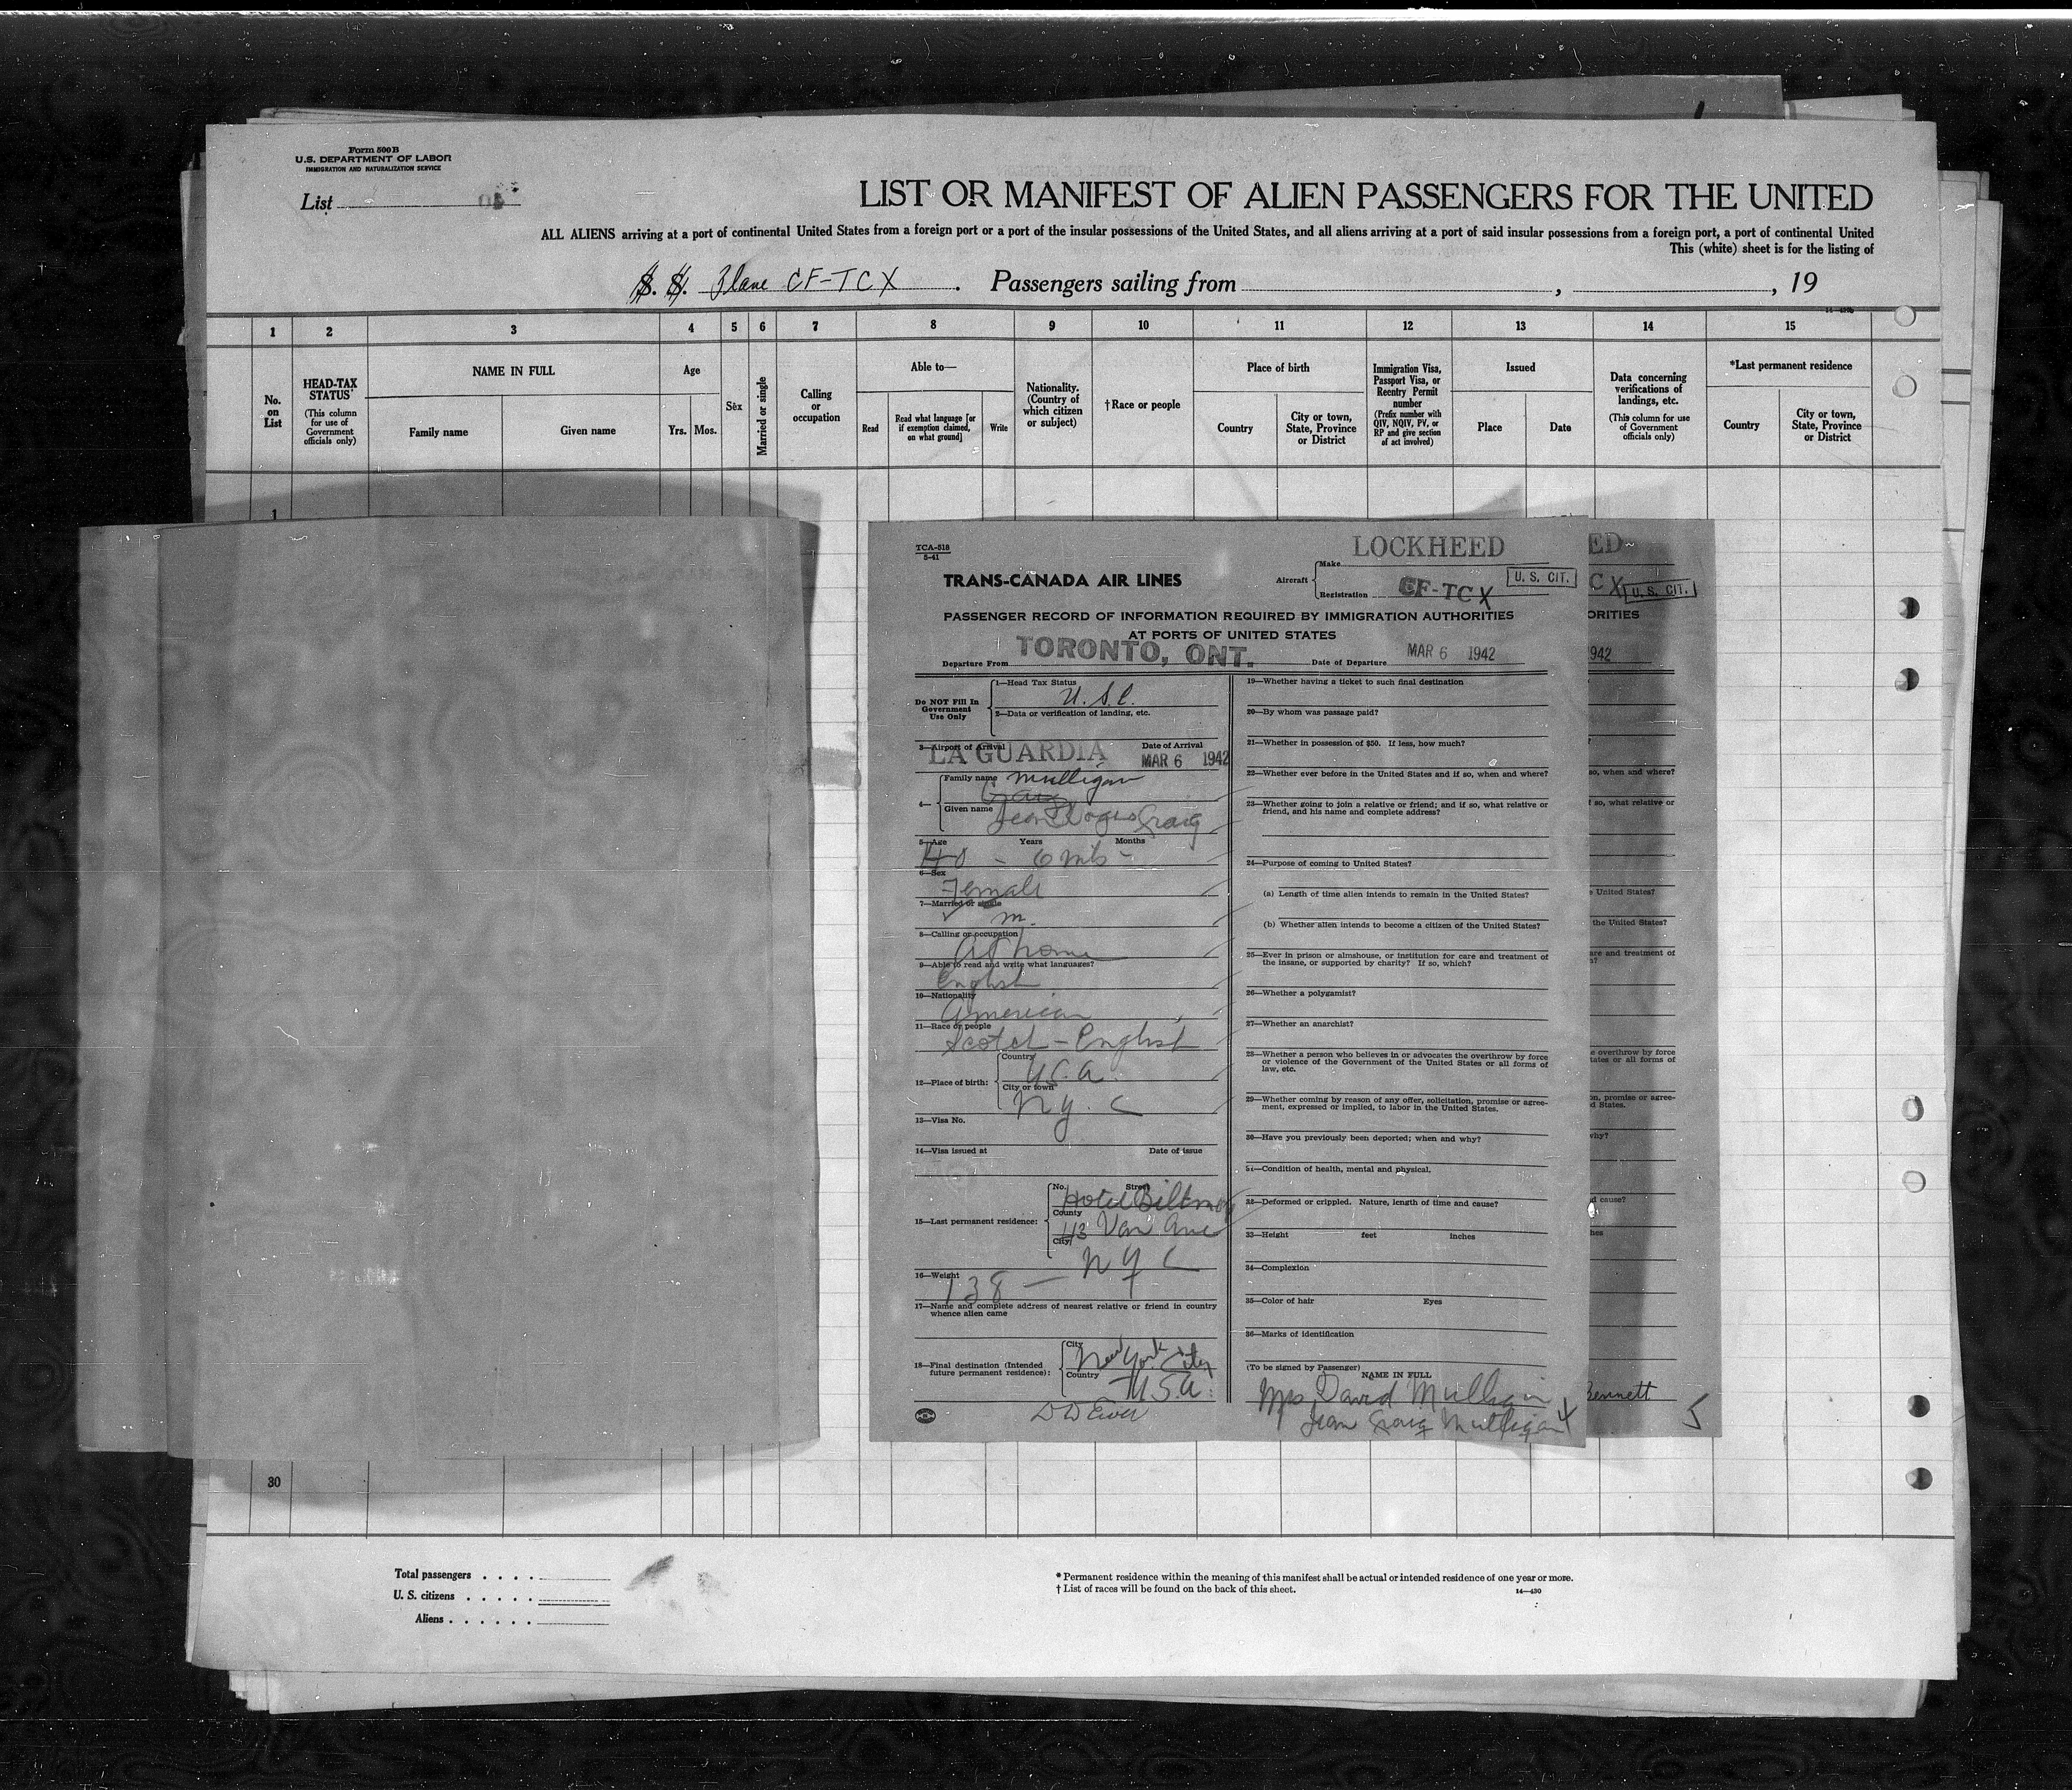 Form 500 B
U.S. DEPARTMENT OF LABOR
IMMIGRATION AND NATURALIZATION SERVICE
List
LIST OR MANIFEST OF ALIEN PASSENGERS FOR THE UNITED
ALL ALIENS arriving at a port of continental United States from a foreign port or a port of the insular possessions of the United States, and all aliens arriving at a port of said insular possessions from a foreign port, a port of continental United
This (white) sheet is for the listing of
S. S. Plane CF-TCX. Passengers sailing from , , 19
1 2 3 4 5 6 7 8 9 10 11 12 13 14 15
No. on List
HEAD-TAX STATUS
(This column for use of Government officials only)
NAME IN FULL
Family name
Given name
Age
Yrs. Mos.
Sex
Married or single
Calling or occupation
Able to—
Read
Read what language [or if exemption claimed, on what ground]
Write
Nationality. (Country of which citizen or subject)
†Race or people
Place of birth
Country
City or town, State, Province or District
Immigration Visa, Passport Visa, or Reentry Permit number
(Prefix number with QIV, NQIV, PV, or RP and give section of act involved)
Issued
Place
Date
Data concerning verifications of landings, etc.
(This column for use of Government officials only)
*Last permanent residence
Country
City or town, State, Province or District
1
TCA-518
5-41
TRANS-CANADA AIR LINES
Aircraft
Make LOCKHEED
Registration CF-TCX
U. S. CIT.
PASSENGER RECORD OF INFORMATION REQUIRED BY IMMIGRATION AUTHORITIES
AT PORTS OF UNITED STATES
Departure From TORONTO, ONT. Date of Departure MAR 6 1942
Do NOT Fill In Government Use Only
1—Head Tax Status
U.S.C.
2—Data or verification of landing, etc.
3—Airport of Arrival Date of Arrival
LA GUARDIA MAR 6 1942
4— Family name Mulligan
Craig
Given name Jean Craig
5—Age Years Months
40 - 6 mts -
6—Sex
Female
7—Married or single
m.
8—Calling or occupation
At home
9—Able to read and write what languages?
English
10—Nationality
American
11—Race or people
Scotch - English
12—Place of birth:
Country
U.S.A.
City or town
N.Y.C
13—Visa No.
14—Visa issued at Date of issue
15—Last permanent residence:
No. Street
Hotel Biltmore
County
43 Van Ave
City
N Y C
16—Weight
138 —
17—Name and complete address of nearest relative or friend in country whence alien came
18—Final destination (Intended future permanent residence):
City New York City
Country U.S.A.
19—Whether having a ticket to such final destination
20—By whom was passage paid?
21—Whether in possession of $50. If less, how much?
22—Whether ever before in the United States and if so, when and where?
23—Whether going to join a relative or friend; and if so, what relative or friend, and his name and complete address?
24—Purpose of coming to United States?
(a) Length of time alien intends to remain in the United States?
(b) Whether alien intends to become a citizen of the United States?
25—Ever in prison or almshouse, or institution for care and treatment of the insane, or supported by charity? If so, which?
26—Whether a polygamist?
27—Whether an anarchist?
28—Whether a person who believes in or advocates the overthrow by force or violence of the Government of the United States or all forms of law, etc.
29—Whether coming by reason of any offer, solicitation, promise or agreement, expressed or implied, to labor in the United States.
30—Have you previously been deported; when and why?
31—Condition of health, mental and physical.
32—Deformed or crippled. Nature, length of time and cause?
33—Height feet inches
34—Complexion
35—Color of hair Eyes
36—Marks of identification
(To be signed by Passenger)
NAME IN FULL
Mrs. David Mulligan
Jean Craig Mulligan 4
ED
CX
U. S. CIT.
ORITIES
1942
so, when and where?
f so, what relative or
United States?
the United States?
are and treatment of
e overthrow by force
tates or all forms of
on, promise or agree-
d States.
why?
d cause?
hes
Bennett
5
30
Total passengers . . . .
U. S. citizens . . . . .
Aliens . . . . . .
* Permanent residence within the meaning of this manifest shall be actual or intended residence of one year or more.
† List of races will be found on the back of this sheet.
14—430